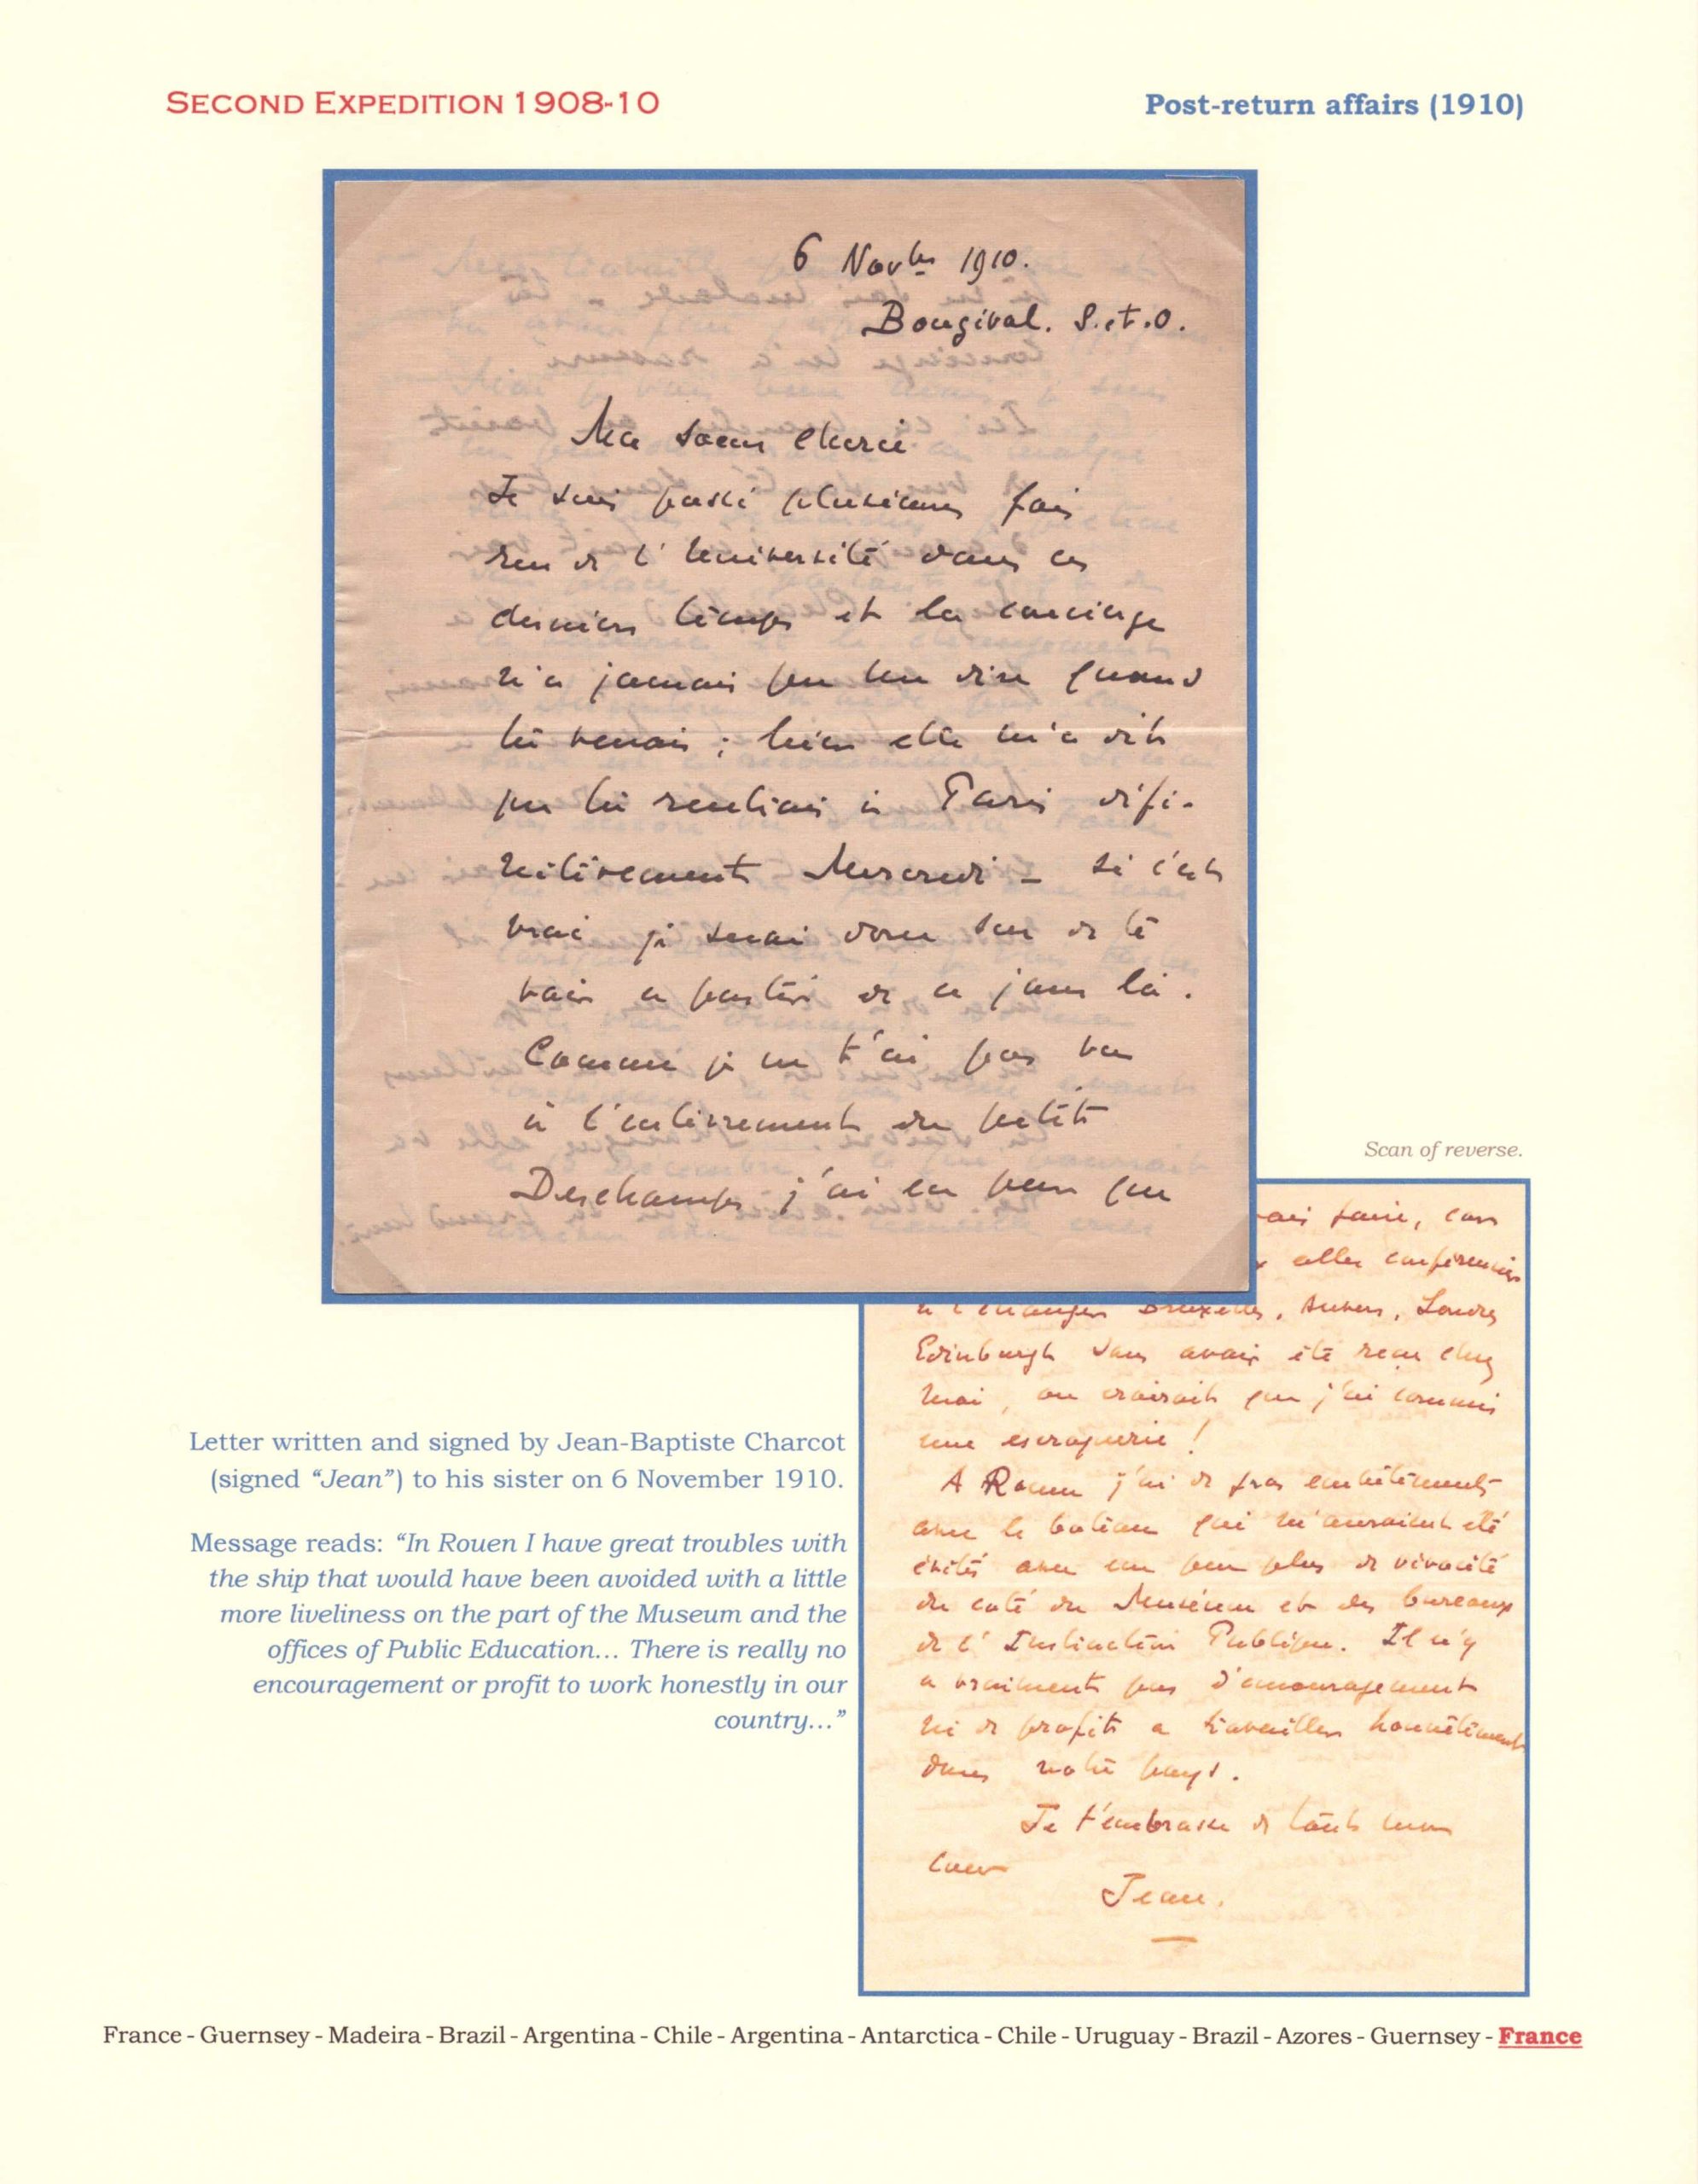 SECOND EXPEDITION 1908-10
Post-return affairs (1910)
6 Novbre 1910.
Bougival. S. et. O.
Ma sœur cherie
Je suis passé plusieurs fois
rue de l'Université dans ces
derniers temps et la concierge
n'a jamais pu me dire quand
tu venais ; hier elle m'a dit
que tu rentrais à Paris défi-
nitivement Mercredi - si c'est
vrai je serai donc sur de te
voir a partir de ce jour là.
Comme je ne t'ai pas vu
à l'enterrement du petit
Deschamps j'ai eu peur que
Scan of reverse.
faire, car
aller conférencier
à l'étranger Bruxelles, Anvers, Londres
Edinburgh sans avoir été reçu chez
moi, on croirait que j'ai commis
une escroquerie !
A Rouen j'ai de gros embêtements
avec le bateau qui m'auraient été
évités avec un peu plus de vivacité
du coté du Muséum et des bureaux
de l'Instruction Publique. Il n'y
a vraiment pas d'encouragement
ni de profit a travailler honnêtement
dans notre pays.
Je t'embrasse de tout mon
cœur
Jean.
Letter written and signed by Jean-Baptiste Charcot
(signed “Jean”) to his sister on 6 November 1910.
Message reads: “In Rouen I have great troubles with
the ship that would have been avoided with a little
more liveliness on the part of the Museum and the
offices of Public Education... There is really no
encouragement or profit to work honestly in our
country...”
France - Guernsey - Madeira - Brazil - Argentina - Chile - Argentina - Antarctica - Chile - Uruguay - Brazil - Azores - Guernsey - France